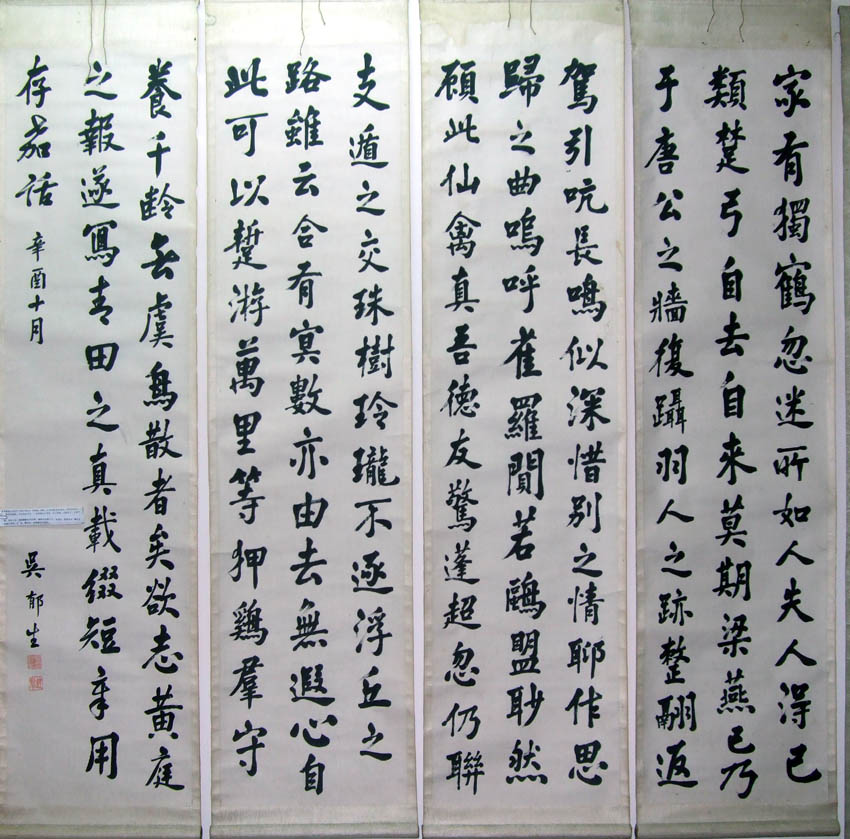 家有獨鶴忽迷所如人失人得已
類楚弓自去自來莫期梁燕已乃
于唐公之牆復躡羽人之跡整翮返
駕引吭長鳴似深惜別之情聊作思
歸之曲嗚呼雀羅閴若鷗盟眇然
顧此仙禽真吾德友驚蓬超忽仍聯
支遁之交珠樹玲瓏不逐浮丘之
路雖云合有冥數亦由去無遐心自
此可以蹔游萬里等狎鷄羣守
養千齡無虞鳧散者矣欲志黃庭
之報遂寫青田之真載綴短章用
存嘉話 辛酉十月
吳郁生